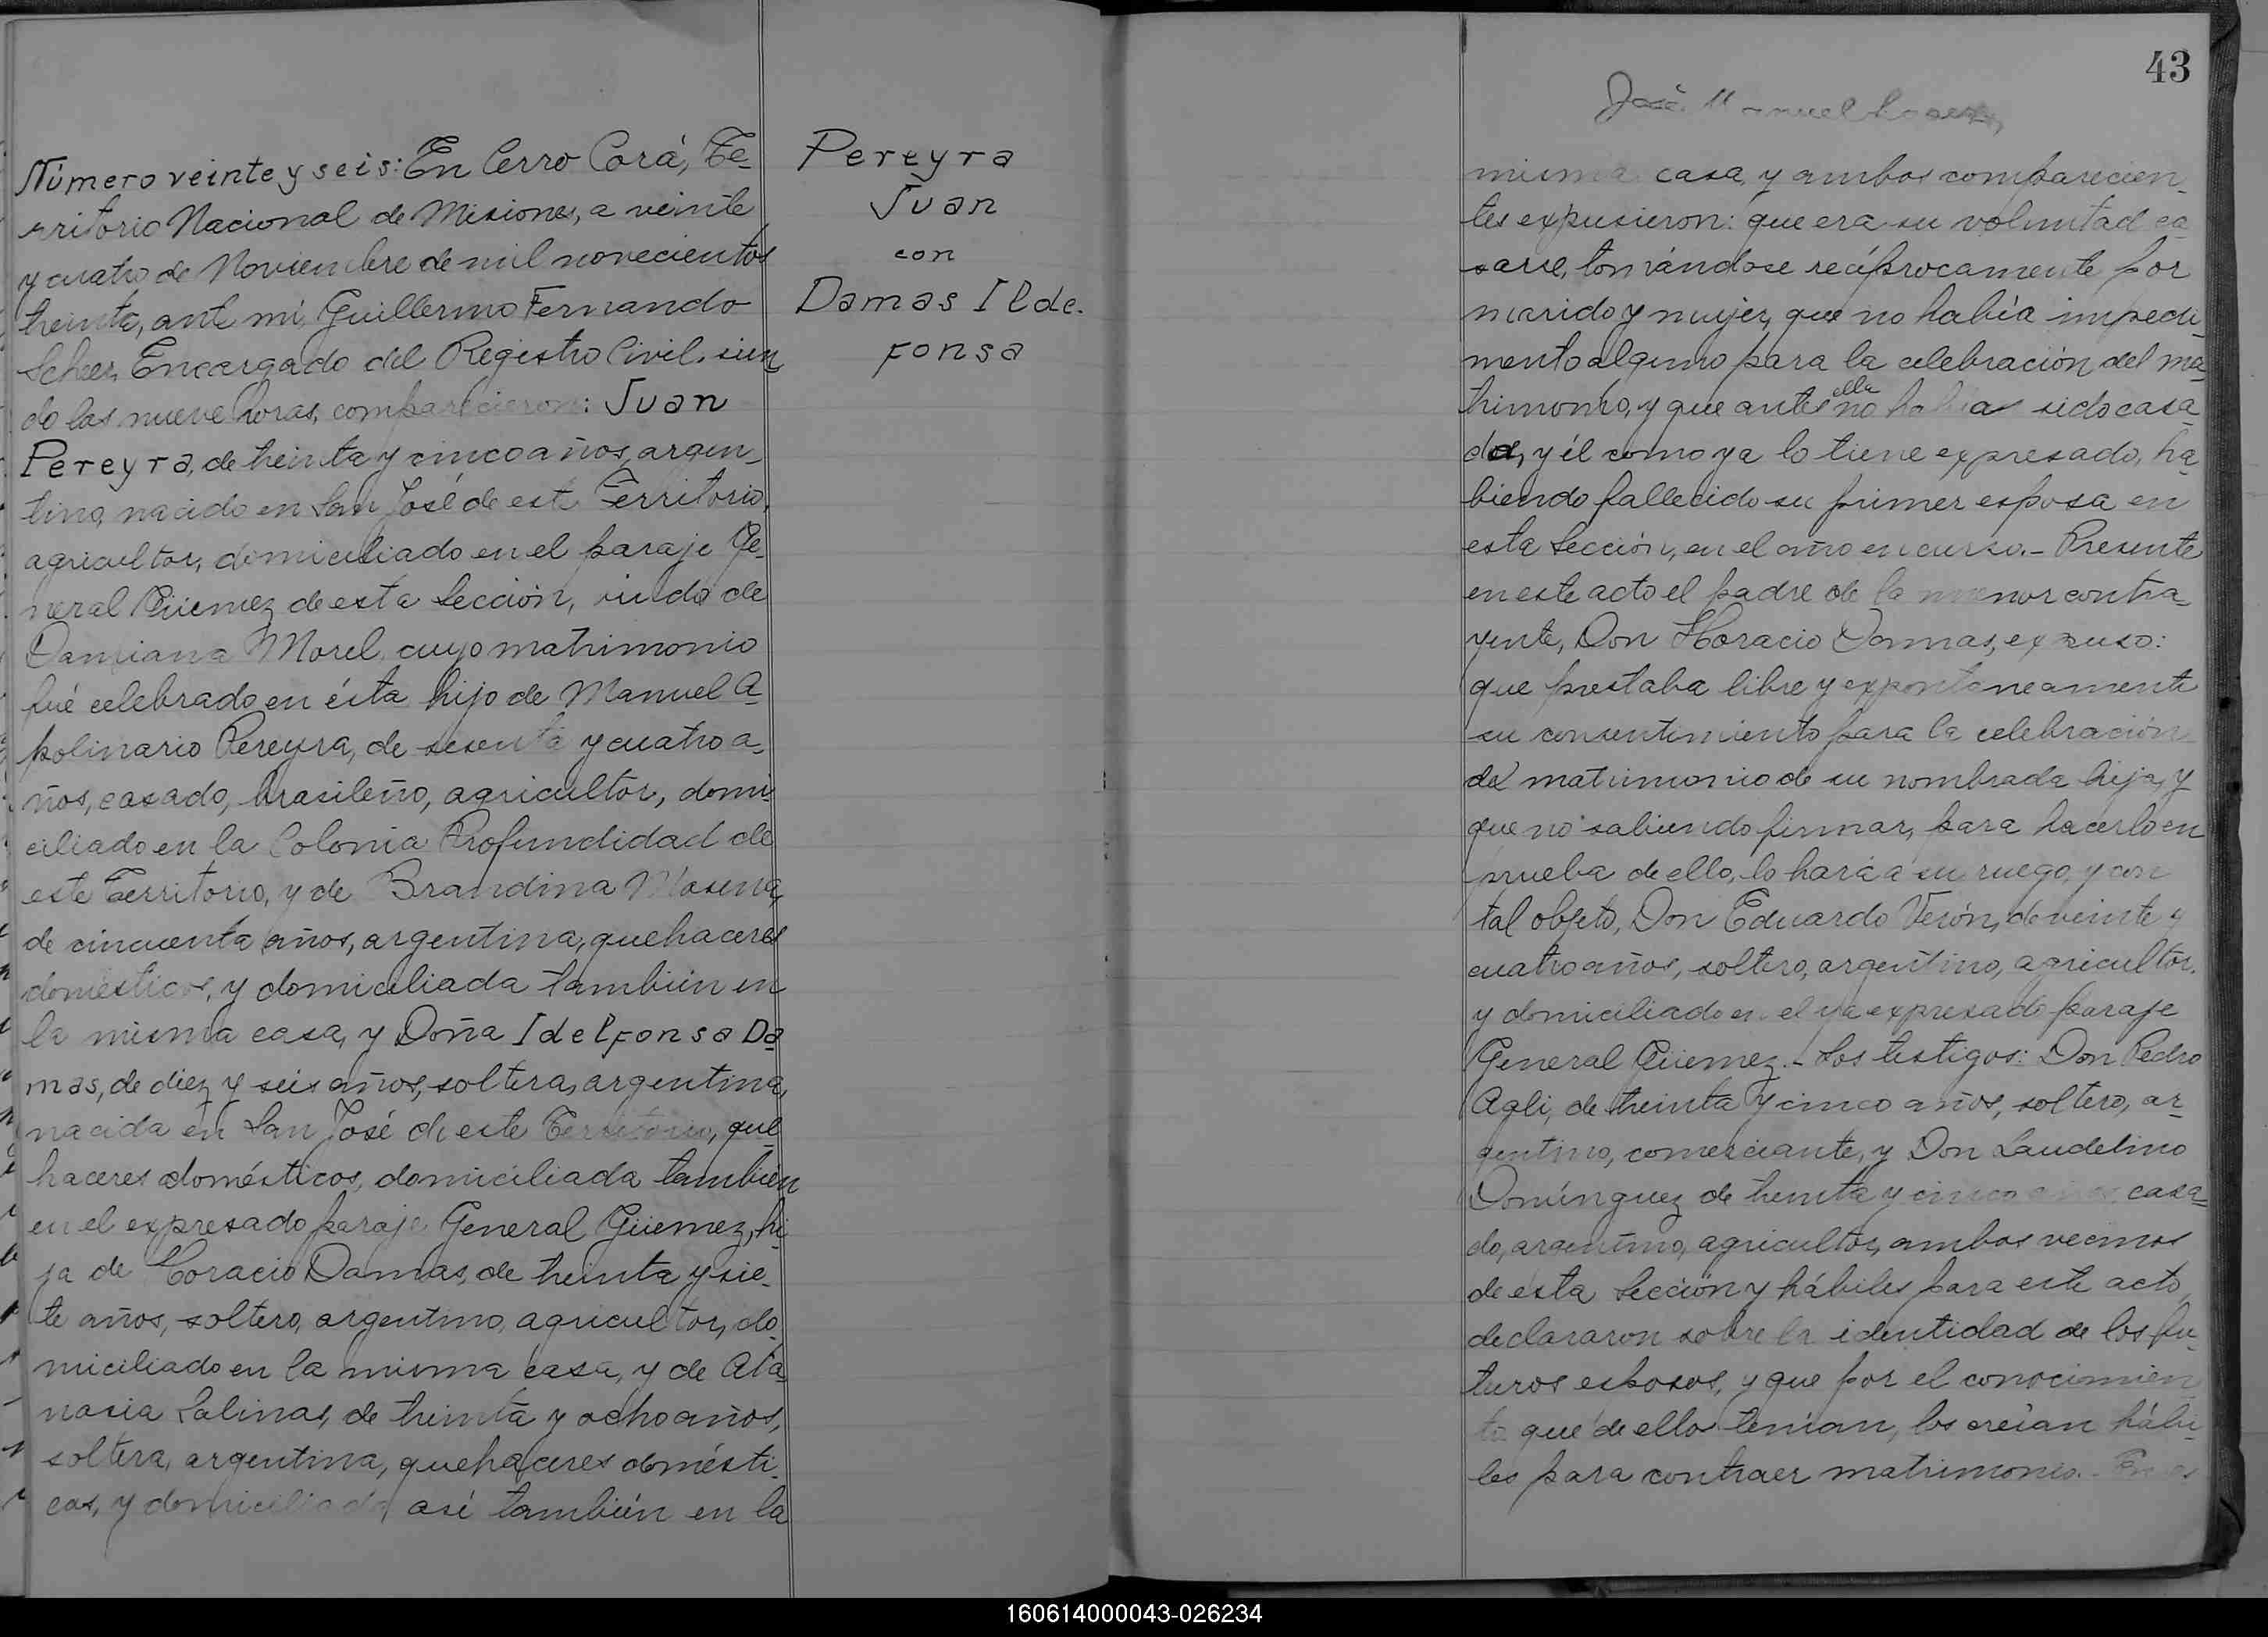 Número veinte y seis: En Cerro Corá, Te-
rritorio Nacional de Misiones, a veinte
y cuatro de Noviembre de mil novecientos
treinta, ante mí, Guillermo Fernando
Scheer, Encargado del Registro Civil, sien
do las nueve horas, comparecieron: Juan
Pereyra, de treinta y cinco años, argen-
tino, nacido en San José de este Territorio,
agricultor, domiciliado en el paraje Ge-
neral Güemez de esta Sección, viudo de
Damiana Morel, cuyo matrimonio
fué celebrado en ésta hijo de Manuel A-
polinario Pereyra, de sesenta y cuatro a-
ños, casado, brasileño, agricultor, domi-
ciliado en la Colonia Profundidad de
este Territorio, y de Brandina
de cincuenta años, argentina, quehaceres
domésticos, y domiciliada también en
la misma casa, y Doña Idelfonsa Da
mas, de diez y seis años, soltera, argentina,
nacida en San José de este Territorio, que-
haceres domésticos, domiciliada también
en el expresado paraje General Güemez, hi-
ja de Horacio Damas, de treinta y sie-
te años, soltero, argentino, agricultor, do-
miciliado en la misma casa, y de Ata-
nasia Salinas, de treinta y ocho años,
soltera, argentina, quehaceres domésti-
cos, y domiciliada así también en la
Pereyra
Juan
con
Damas Ilde.
fonsa
43
José Manuel
misma casa, y ambos comparecien-
tes expusieron: que era su voluntad ca-
sarse, tomándose recíprocamente por
marido y mujer, que no había impedi-
mento alguno para la celebración del ma-
trimonio, y que antes ella no había sido casa-
da, y él como ya lo tiene expresado, ha-
biendo fallecido su primer esposa en
esta Sección, en el año en curso.- Presente
en este acto el padre de la menor contra-
yente, Don Horacio Damas, expuso:
que prestaba libre y expontaneamente
su consentimiento para la celebración
del matrimonio de su nombrada hija, y
que no sabiendo firmar, para hacerlo en
prueba de ello, lo hará a su ruego, y con
tal objeto, Don Eduardo Verón, de veinte y
cuatro años, soltero, argentino, agricultor,
y domiciliado en el ya expresado paraje
General Güemez.- Los testigos: Don Pedro
Agli, de treinta y cinco años, soltero, ar-
gentino, comerciante, y Don Laudelino
Domínguez de treinta y cinco años, casa-
do, argentino, agricultor, ambos vecinos
de esta Sección y hábiles para este acto,
declararon sobre la identidad de los fu-
turos esposos, y que por el conocimien
to que de ellos tenían, los creían hábi-
les para contraer matrimonio.-
160614000043-026234